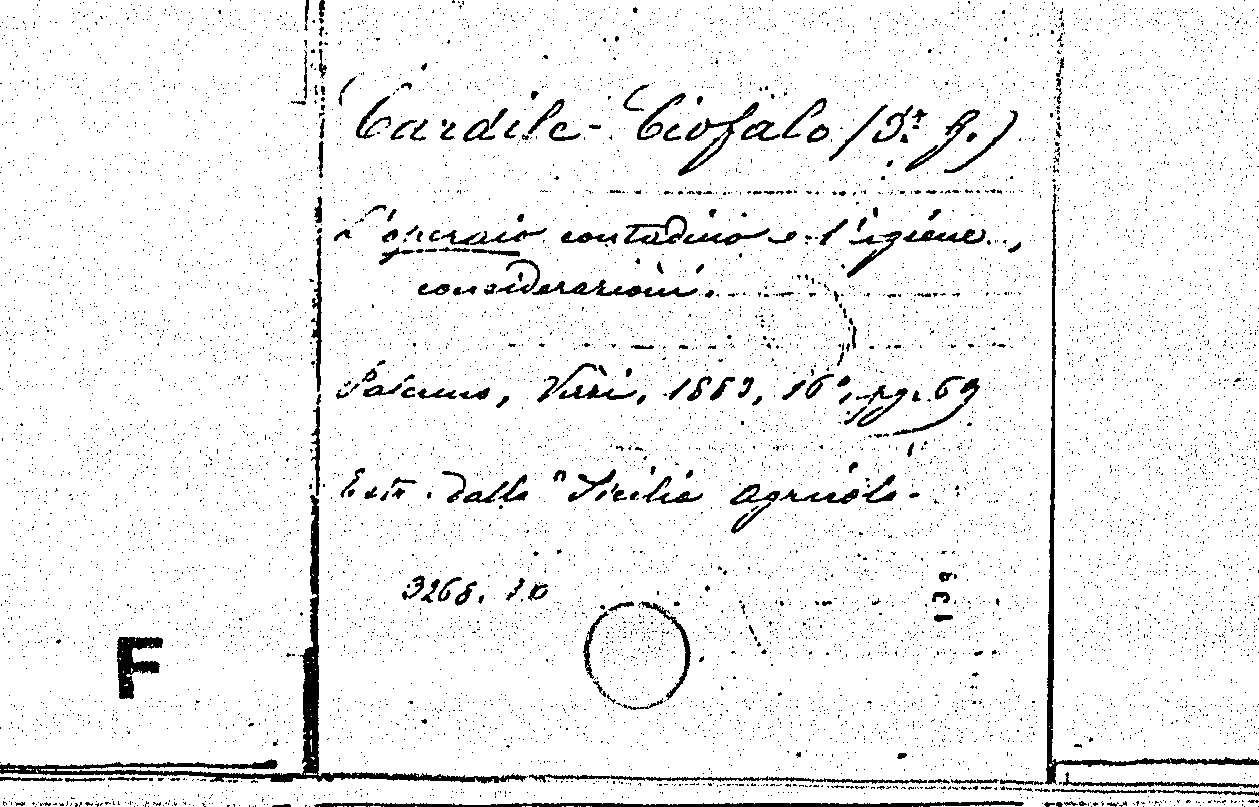 Cardile-Ciofalo (Dr. G.)
L'operaio contadino e l'igiene,
considerazioni.
Palermo, Virzì, 1883, 16°, pg. 69
Estr. dalla "Sicilia Agricola.
3268. 10
139
F